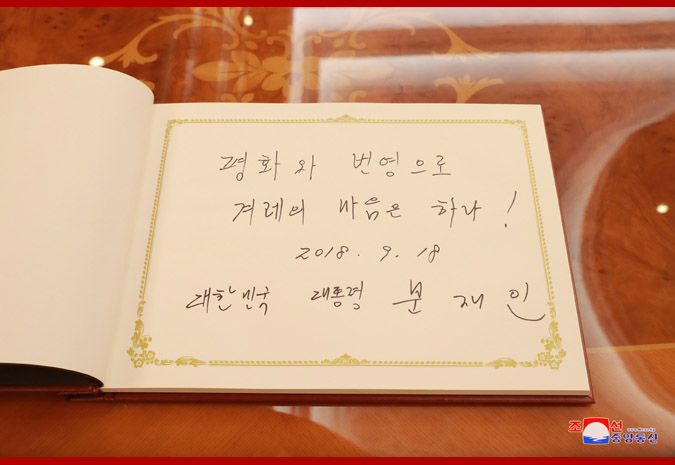 평화와 번영으로
겨레의 마음은 하나!
2018. 9. 18
대한민국 대통령 문재인
조선
중앙통신